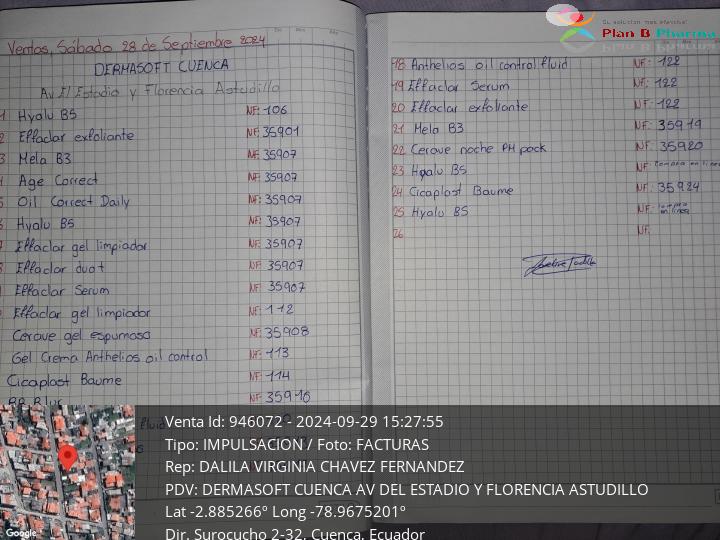 Ventas, Sábado 28 de Septiembre 2024
DERMASOFT CUENCA
Av El Estadio y Florencia Astudillo
1 Hyalu B5 NF: 106
2 Effaclar exfoliante NF: 35901
3 Mela B3 NF: 35907
Age Correct NF: 35907
5 Oil Correct Daily NF: 35907
Hyalu B5 NF: 35907
Effaclar gel limpiador NF: 35907
Effaclar duo+ NF: 35907
Effaclar Serum NF: 35907
Effaclar gel limpiador NF: 112
Cerave gel espumoso NF: 35908
Gel Crema Anthelios oil control NF: 113
Cicaplast Baume NF: 114
BB Blur NF: 35916
fluid
Su solución más efectiva!
Plan B Pharma
18 Anthelios oil control fluid NF: 122
19 Effaclar Serum NF: 122
20 Effaclar exfoliante NF: 122
21 Mela B3 NF: 35919
22 Cerave noche PM pack NF: 35920
23 Hyalu B5 NF: Compra en linea
24 Cicaplast Baume NF: 35924
25 Hyalu B5 NF: Compra en linea
26 NF:
Venta Id: 946072 - 2024-09-29 15:27:55
Tipo: IMPULSACION / Foto: FACTURAS
Rep: DALILA VIRGINIA CHAVEZ FERNANDEZ
PDV: DERMASOFT CUENCA AV DEL ESTADIO Y FLORENCIA ASTUDILLO
Lat -2.885266° Long -78.9675201°
Dir. Surocucho 2-32, Cuenca, Ecuador
Google